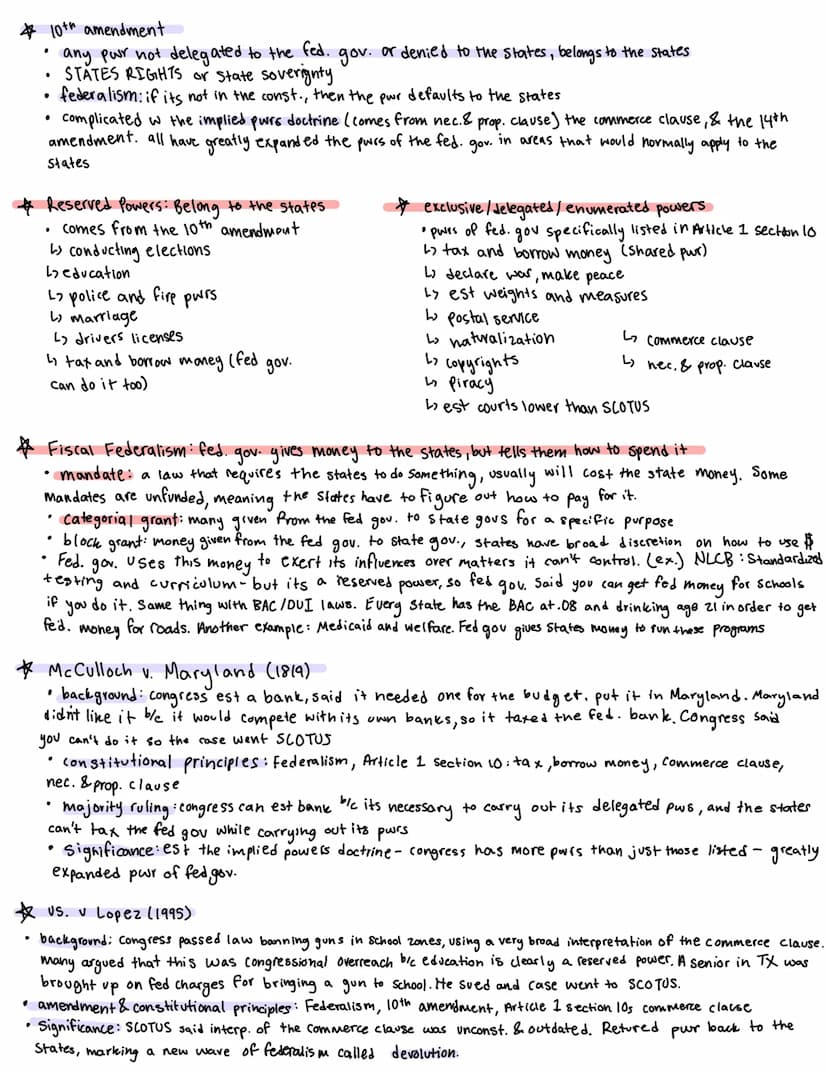 ☆ 10th amendment
• any pwr not delegated to the fed. gov. or denied to the states, belongs to the states
• STATES RIGHTS or State soverignty
• federalism: if its not in the const., then the pwr defaults to the states
• complicated w the implied pwrs doctrine (comes from nec. & prop. clause) the commerce clause, & the 14th
amendment. all have greatly expanded the pwrs of the fed. gov. in areas that would normally apply to the
states
☆ Reserved Powers: Belong to the states
• comes from the 10th amendment
↳ conducting elections
↳ education
↳ police and fire pwrs
↳ marriage
↳ drivers licenses
↳ tax and borrow money (fed gov.
can do it too)
☆ exclusive/delegated/enumerated powers
• pwrs of fed. gov specifically listed in Article 1 section 10
↳ tax and borrow money (shared pwr)
↳ declare war, make peace
↳ est weights and measures
↳ postal service
↳ naturalization
↳ copyrights
↳ piracy
↳ est courts lower than SCOTUS
↳ commerce clause
↳ nec. & prop. clause
☆ Fiscal Federalism: fed. gov. gives money to the states, but tells them how to spend it
• mandate: a law that requires the states to do something, usually will cost the state money. Some
mandates are unfunded, meaning the states have to figure out how to pay for it.
• categorial grant: many given from the fed gov. to state govs for a specific purpose
• block grant: money given from the fed gov. to state gov., states have broad discretion on how to use $
• Fed. gov. uses this money to exert its influences over matters it can't control. (ex.) NLCB: Standardized
testing and curriculum - but its a reserved power, so fed gov. said you can get fed money for schools
if you do it. Same thing with BAC/DUI laws. Every state has the BAC at .08 and drinking age 21 in order to get
fed. money for roads. Another example: Medicaid and welfare. Fed gov gives states money to run these programs
☆ McCulloch v. Maryland (1819)
• background: congress est a bank, said it needed one for the budget. put it in Maryland. Maryland
didn't like it b/c it would compete with its own banks, so it taxed the fed. bank. Congress said
you can't do it so the case went SCOTUS
• constitutional principles: Federalism, Article 1 section 10: tax, borrow money, commerce clause,
nec. & prop. clause
• majority ruling: congress can est bank b/c its necessary to carry out its delegated pws, and the states
can't tax the fed gov while carrying out its pwrs
• significance: est the implied powers doctrine - congress has more pwrs than just those listed - greatly
expanded pwr of fed gov.
☆ US. v Lopez (1995)
• background: Congress passed law banning guns in school zones, using a very broad interpretation of the commerce clause.
many argued that this was congressional overreach b/c education is clearly a reserved power. A senior in TX was
brought up on fed charges for bringing a gun to school. He sued and case went to SCOTUS.
• amendment & constitutional principles: Federalism, 10th amendment, Article 1 section 10s commerce clause
• Significance: SCOTUS said interp. of the commerce clause was unconst. & outdated. Retured pwr back to the
states, marking a new wave of federalism called devolution.